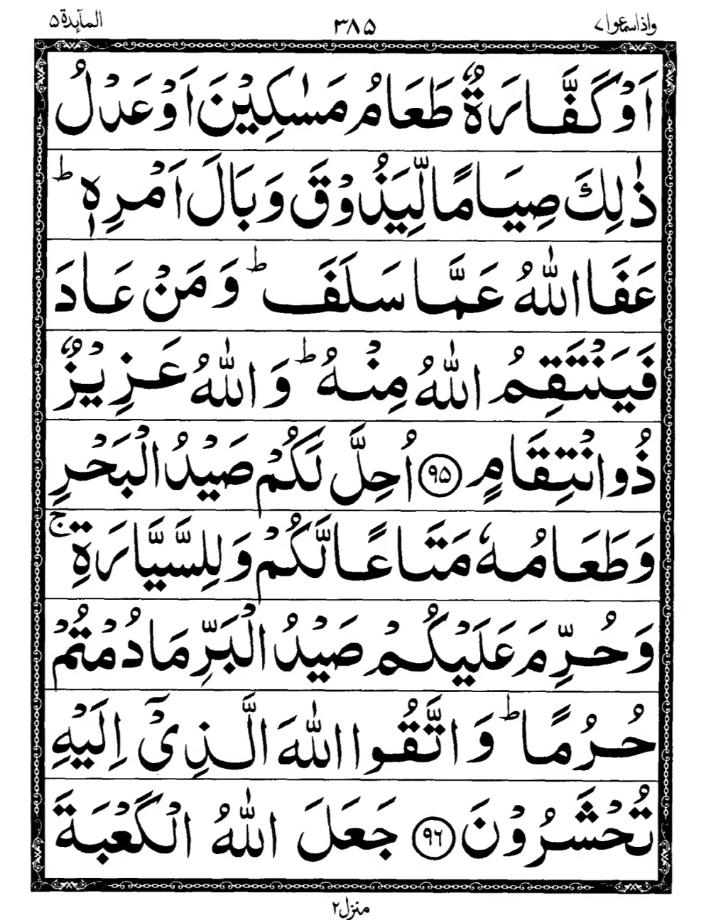 واذاسمعوا٧ ٣٨٥ المآىدة٥
اَوْ كَفَّارَةٌ طَعَامُ مَسٰكِيْنَ اَوْ عَدْلُ
ذٰلِكَ صِيَامًا لِّيَذُوْقَ وَبَالَ اَمْرِهٖ ؕ
عَفَا اللّٰهُ عَمَّا سَلَفَ ؕ وَ مَنْ عَادَ
فَيَنْتَقِمُ اللّٰهُ مِنْهُ ؕ وَ اللّٰهُ عَزِيْزٌ
ذُو انْتِقَامٍ ﴿۹۵﴾ اُحِلَّ لَكُمْ صَيْدُ الْبَحْرِ
وَ طَعَامُهٗ مَتَاعًا لَّكُمْ وَ لِلسَّيَّارَةِ ۚ
وَ حُرِّمَ عَلَيْكُمْ صَيْدُ الْبَرِّ مَا دُمْتُمْ
حُرُمًا ؕ وَ اتَّقُوا اللّٰهَ الَّذِيْۤ اِلَيْهِ
تُحْشَرُوْنَ ﴿۹۶﴾ جَعَلَ اللّٰهُ الْكَعْبَةَ
منزل۲